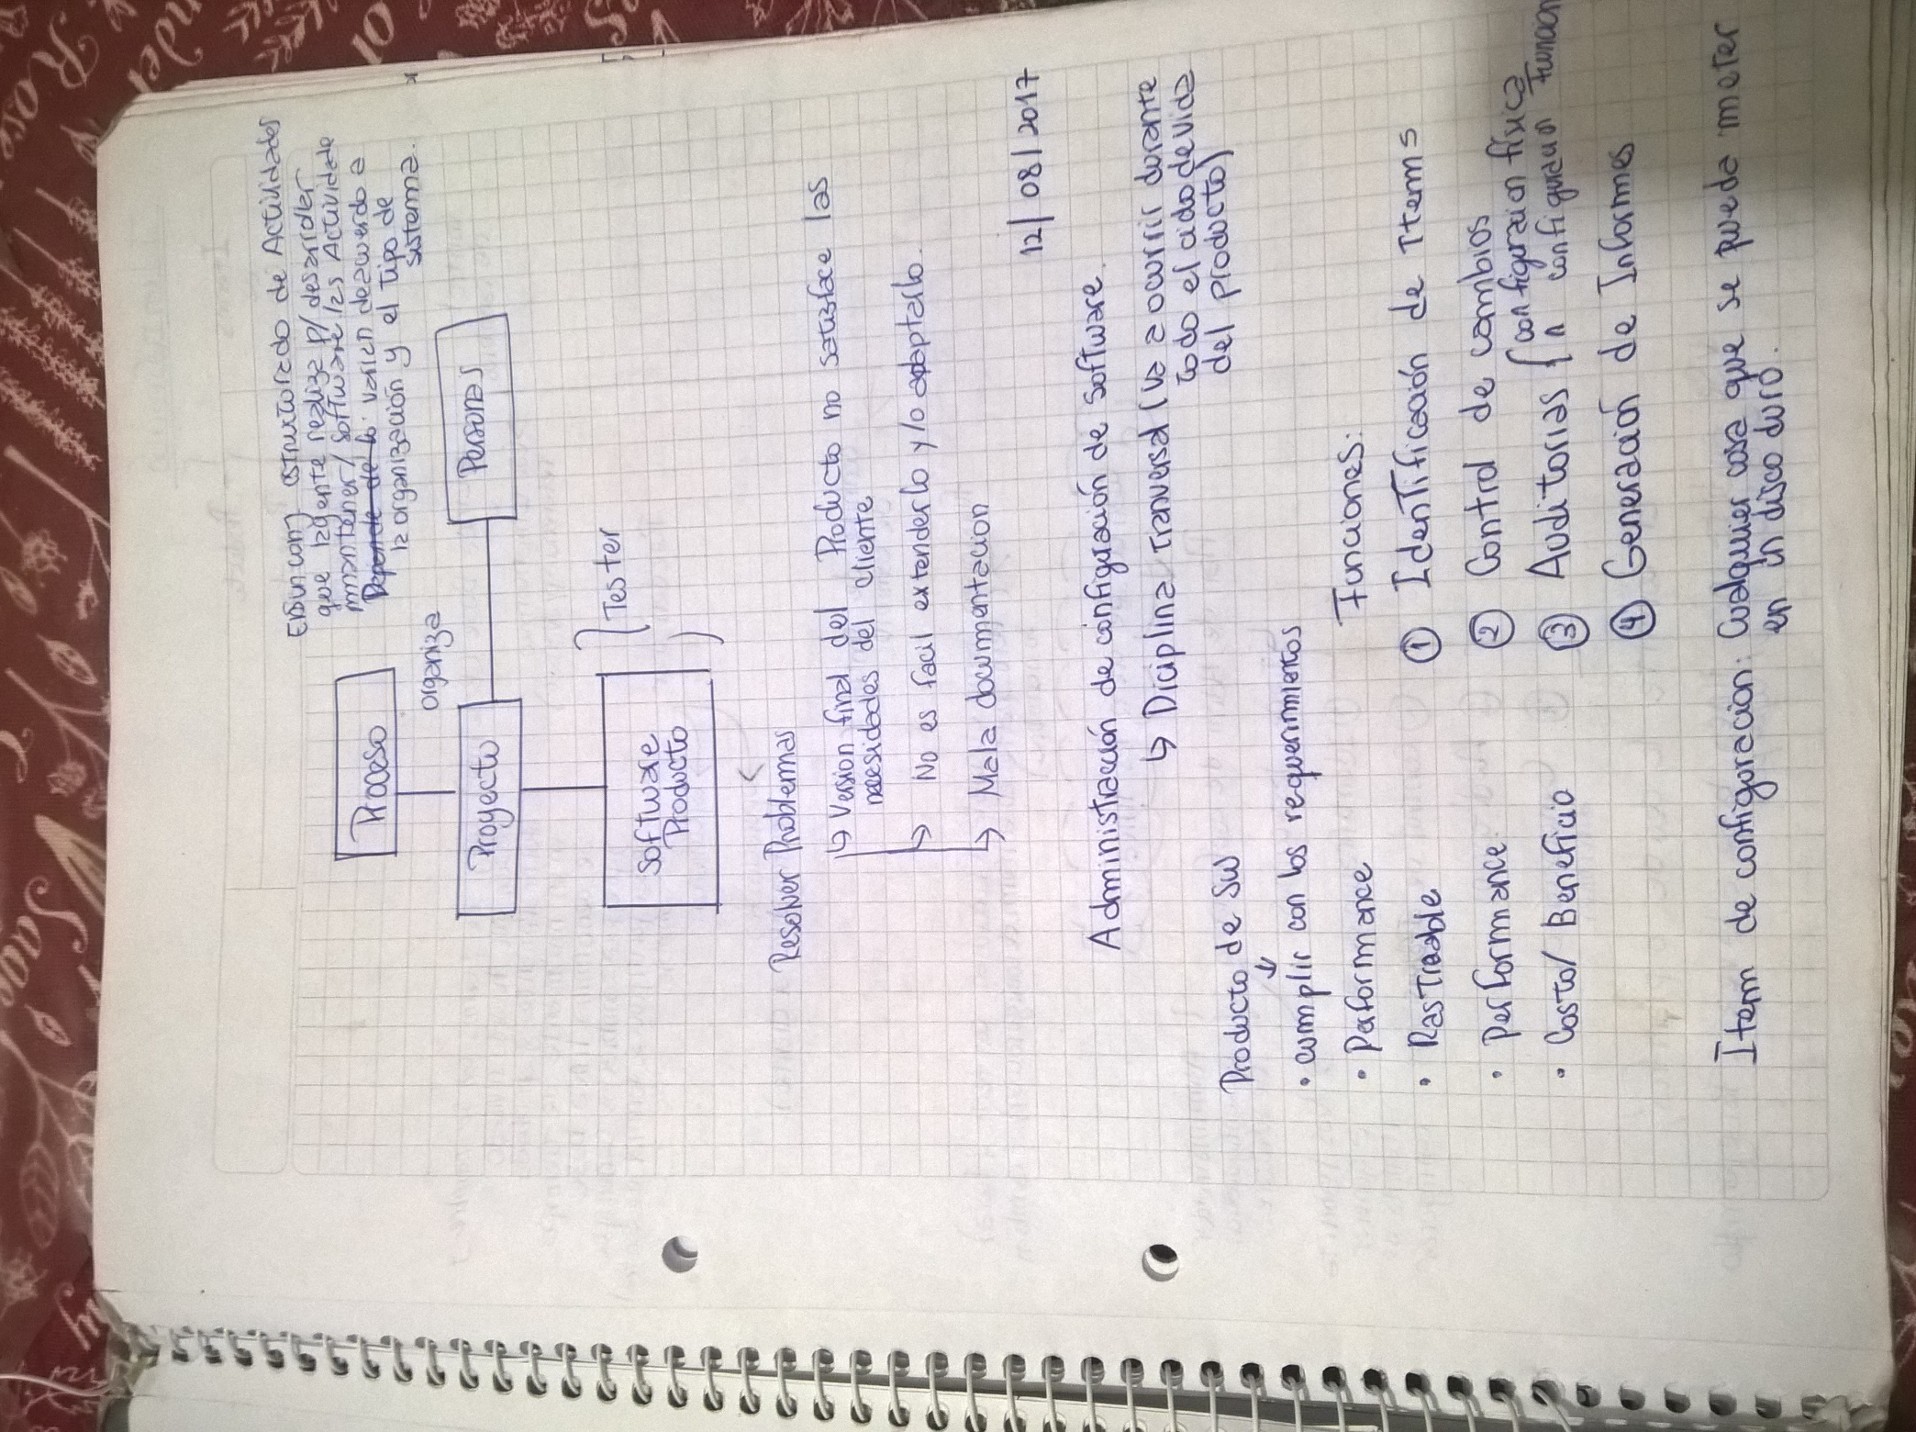 Es un conj estructurado de Actividades
que la gente realiza p/ desarroller
mantener/ software las Actividade
Depende de lo varien deacuerdo a
la organización y el tipo de
sistema.
Proceso
organiza
Proyecto
Personas
Tester
Software
Producto
Resolver Problemas
↳ Version final del Producto no satisface las
necesidades del cliente
↳ No es facil extenderlo y/o adaptarlo.
↳ Mala documentacion
12/08/2017
Administracción de configuración de Software.
↳ Diciplina Tranversal (va a ocurrir durante
todo el ciclo de vida
del producto)
Producto de SW
↓
• cumplir con los requerimientos
• Performance
• Rastreable
• Performance
• Costo/ Beneficio
Funciones:
① Identificación de Items
② Control de cambios
③ Auditorias { configuracion física
configuracion Funcion
④ Generación de Informes
Item de configuracion: Cualquier cosa que se pueda meter
en un disco duro.